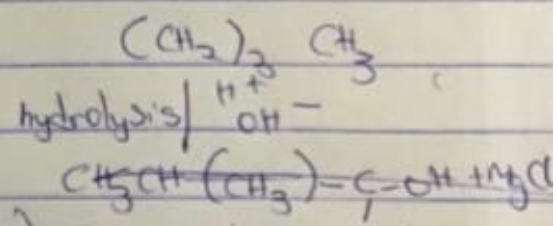 (CH₂)₃ CH₃
hydrolysis | H⁺
OH⁻
CH₃CH(CH₃)-C-OH + Mg Cl